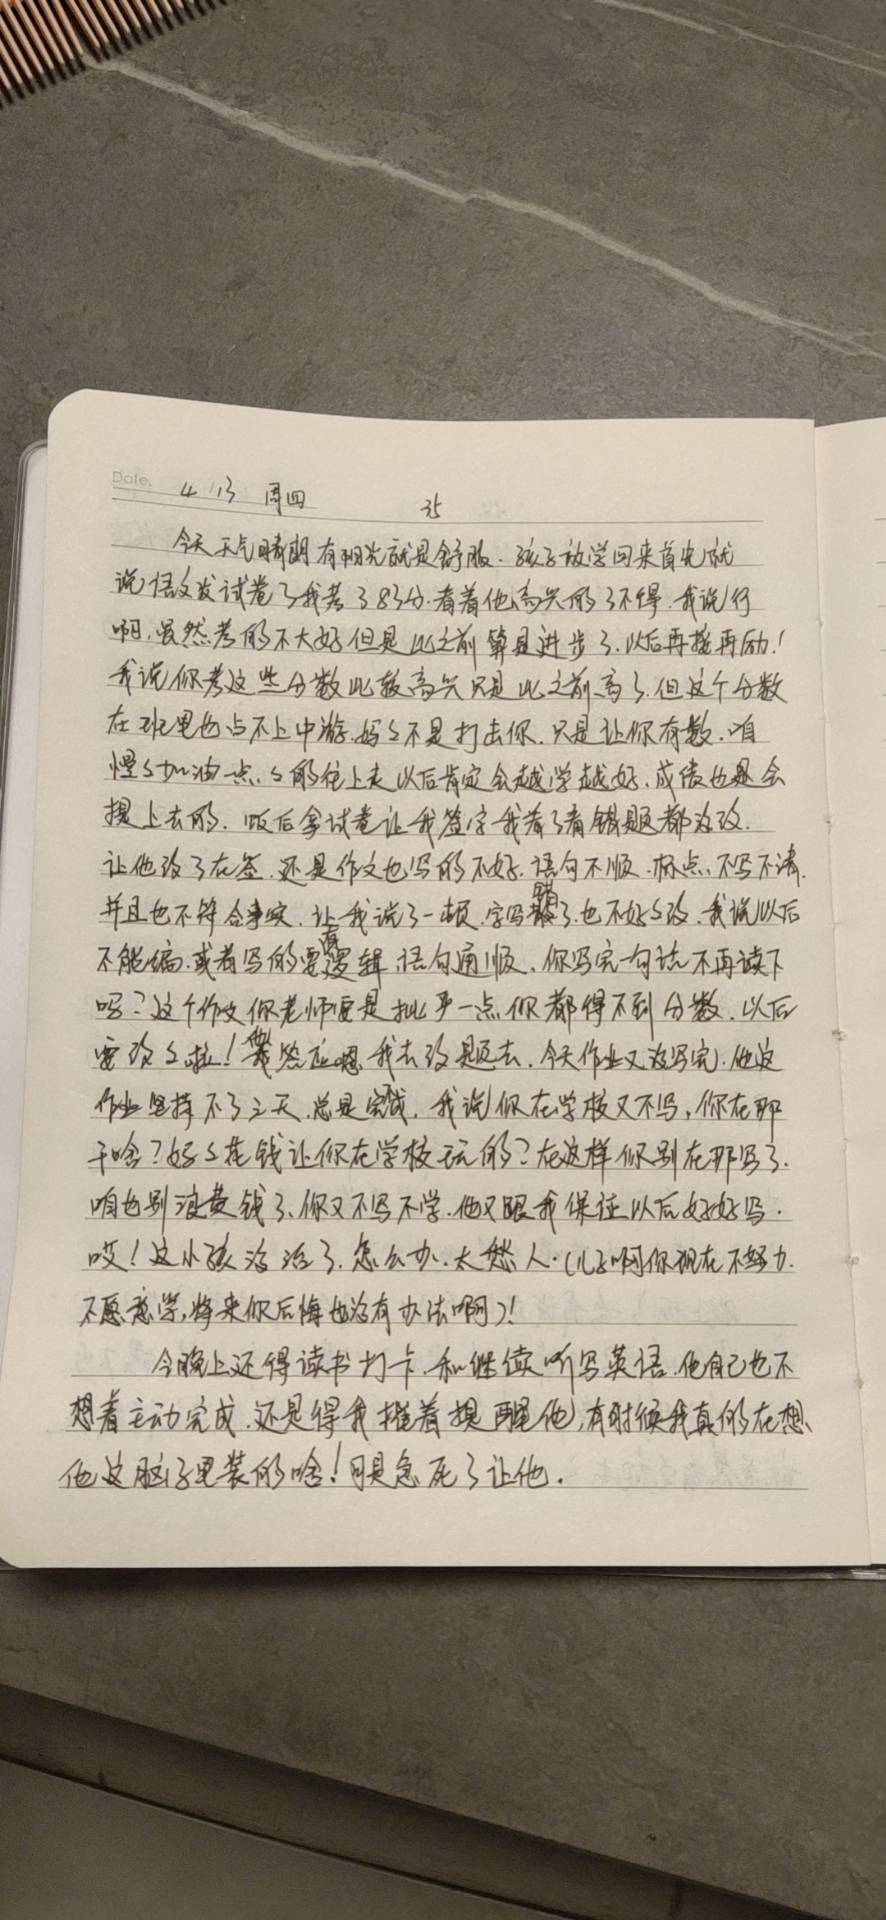 Date.
4 13 周四 35
今天天气晴朗有阳光就是舒服.孩子放学回来首先就
说语文发试卷了我考了83分.看着他高兴的了不得.我说行
啊,虽然考的不太好但是比之前算是进步了.以后再接再励!
我说你考这些分数比较高兴只是比之前高了.但这个分数
在班里也占不上中游.妈々不是打击你.只是让你有数.咱
慢々加油一点々的往上走以后肯定会越学越好.成绩也是会
提上去的.饭后拿试卷让我签字我看了看错题都没改.
让他改了在签.还是作文也写的不好.语句不顺.标点.不写不清.
并且也不符合事实.让我说了一顿.字写错了.也不好々改.我说以后
不能编.或者写的要有逻辑.语句通顺.你写完一句话不再读下
吗?这个作文你老师要是批严一点你都得不到分数.以后
要改々啦!他答应嗯我去改题去.今天作业又没写完.他这
作业坚持不了三天.总是完不成.我说你在学校又不写,你在那
干啥?好々花钱让你在学校玩的?在这样你别在那写了.
咱也别浪费钱了.你又不写不学.他又跟我保证以后好好写.
哎!这小孩没治了.怎么办.太愁人.(儿子啊你现在不努力.
不愿意学,将来你后悔也没有办法啊)!
今晚上还得读书打卡.和继续听写英语.他自己也不
想着主动完成.还是得我推着提醒他,有时候我真的在想、
他这脑子里装的啥!可是急死了让他.